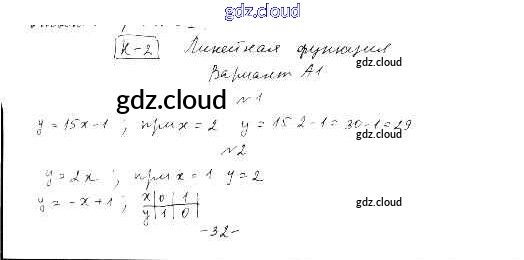 gdz.cloud
К-2 Линейная функция
gdz.cloud
Вариант А1
gdz.cloud
№1
y = 15x-1; при x = 2 y = 15·2-1 = 30-1 = 29
gdz.cloud
№2
y = 2x; при x = 1 y = 2
y = -x+1; x 0 1
y 1 0
gdz.cloud
-32-
gdz.cloud